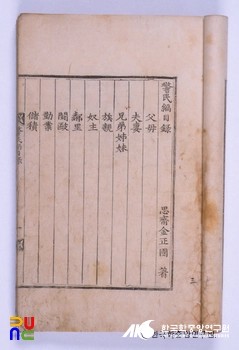 警民編目錄
思齋金正國 著
父母
夫妻
兄弟姊妹
族親
奴主
鄰里
鬪毆
勤業
儲積
한국학중앙연구원